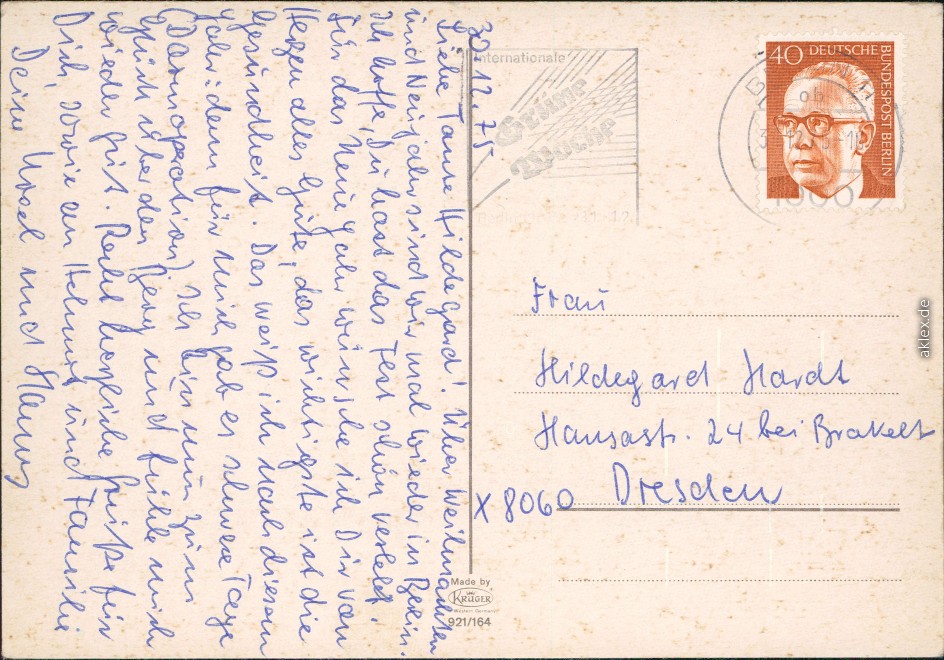 30.12.75
Liebe Tante Hildegard! Über Weihnachten
und Neujahr sind wir mal wieder in Berlin.
Ich hoffe, Du hast das Fest schön verlebt.
Für das Neue Jahr wünsche ich Dir von
Herzen alles Gute, das wichtigste ist die
Gesundheit. Das weiß ich nach diesem
Jahr, denn für mich gab es schwere Tage
(Darmoperation). Ich bin nun zum
Glück über den Berg und fühle mich
wieder gut. Recht herzliche Grüße für
Dich, sowie an Helmut und Familie
Deine Ursel und Hans
Internationale
Grüne
Woche
40 DEUTSCHE BUNDESPOST BERLIN
1000
Frau
Hildegard Hardt
Hansastr. 24 bei Brakelt
X 8060 Dresden
Made by
KRÜGER
Western Germany
921/164
aklex.de